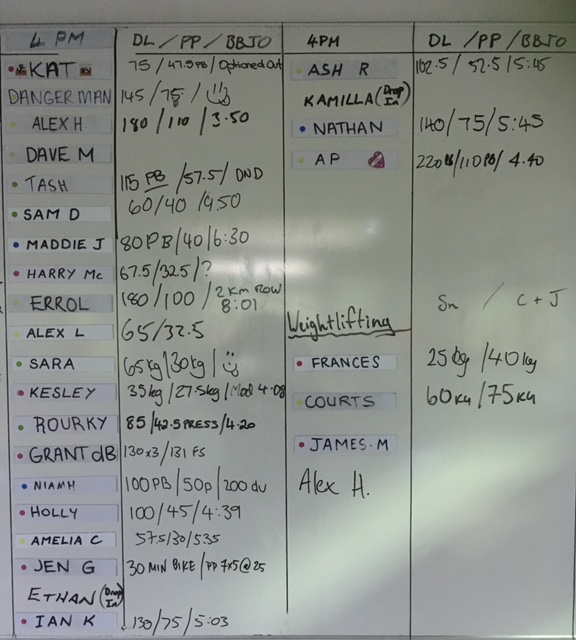 4 PM DL / PP / BBJO
KAT 75 / 47.5 PB / Optioned Out
DANGERMAN 145 / 75 /
ALEX H. 180 / 110 / 3.50
DAVE M
TASH 115 PB / 57.5 / DND
SAM D 60/40 /4.50
MADDIE J 80PB/40/6:30
HARRY Mc 67.5/32.5/?
ERROL 180 / 100 / 2KM ROW 8:01
ALEX L 65/32.5
SARA 65kg/30kg /
KESLEY 35kg /27.5kg/Mod 4.08
ROURKY 85/42.5PRESS/4.20
GRANT dB 130x3/131 FS
NIAMH 100PB/50p/200 du
HOLLY 100/45/4:39
AMELIA C 57.5/30/535
JEN G 30 MIN BIKE / PP 7x5@25
ETHAN (Drop In)
IAN K 130/75/5:03
4PM DL / PP / BBJO
ASH R 102.5 / 52.5 /5:45
KAMILLA (Drop In)
NATHAN 140/75/5:45
AP 220PB/110PB/ 4.40
Weightlifting Sn / C + J
FRANCES 25kg /40kg
COURTS 60kg/75kg
JAMES.M
Alex H.